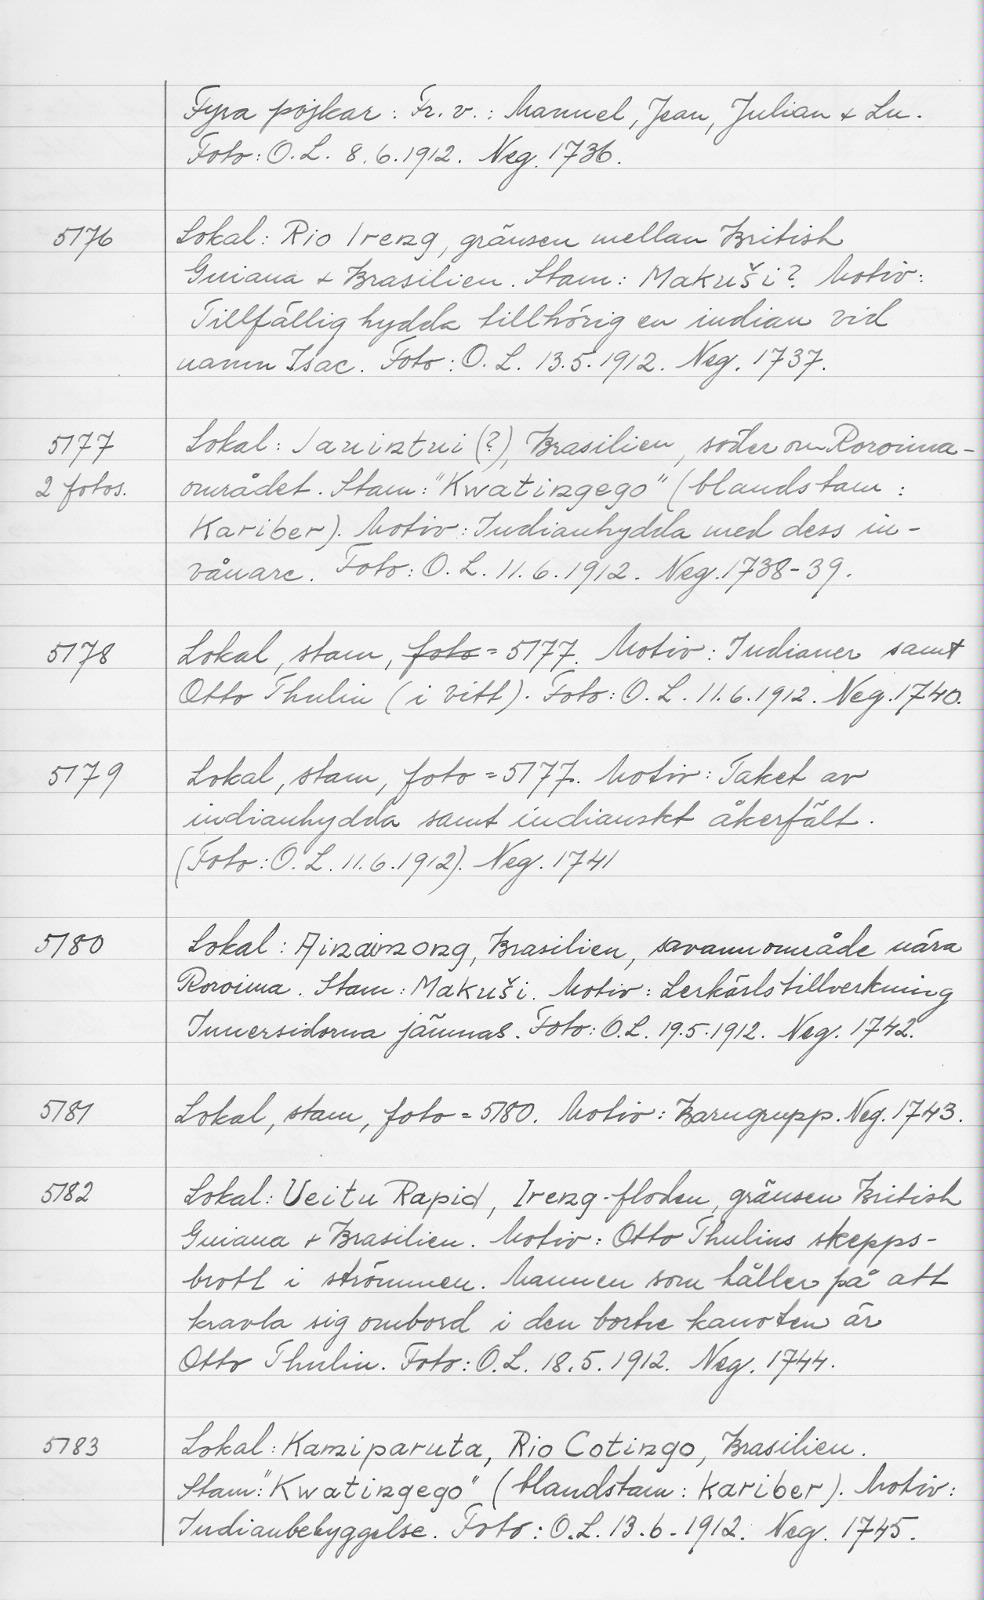 Fyra pojkar: Fr. v.: Manuel, Jean, Julian & Lu.
Foto: O. L. 8.6.1912. Neg. 1736.
5176 Lokal: Rio Ireng, gränsen mellan British
Guiana & Brasilien. Stam: Makuši? Motiv:
Tillfällig hydda tillhörig en indian vid
namn Isac. Foto: O. L. 13.5.1912. Neg. 1737.
5177 Lokal: (?), Brasilien, söder om Roroima-
2 fotos. området. Stam: "Kwatingego" (blandstam:
Kariber). Motiv: Indianhydda med dess in-
vånare. Foto: O. L. 11.6.1912. Neg. 1738-39.
5178 Lokal, stam, foto = 5177. Motiv: Indianer samt
Otto Thulin (i vitt). Foto: O. L. 11.6.1912. Neg. 1740.
5179 Lokal, stam, foto = 5177. Motiv: Taket av
indianhydda samt indianskt åkerfält.
(Foto: O. L. 11.6.1912). Neg. 1741
5180 Lokal: Brasilien, savannområde nära
Roroima. Stam: Makuši. Motiv: Lerkärlstillverkning
Innersidorna jämnas. Foto: O.L. 19.5.1912. Neg. 1742.
5181 Lokal, stam, foto = 5180. Motiv: Barngrupp. Neg. 1743.
5182 Lokal: Ueitu Rapid, Ireng-floden, gränsen British
Guiana & Brasilien. Motiv: Otto Thulins skepps-
brott i strömmen. Mannen som håller på att
kravla sig ombord i den bortre kanoten är
Otto Thulin. Foto: O.L. 18.5.1912. Neg. 1744.
5183 Lokal: Kamiparuta, Rio Cotingo, Brasilien.
Stam: "Kwatingego" (blandstam: kariber). Motiv:
Indianbebyggelse. Foto: O.L. 13.6.1912. Neg. 1745.